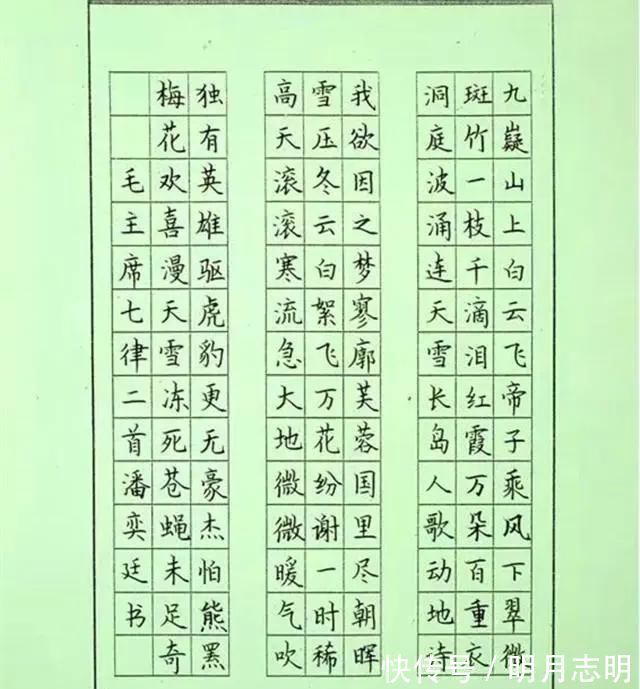 九嶷山上白云飞帝子乘风下翠微
斑竹一枝千滴泪红霞万朵百重衣
洞庭波涌连天雪长岛人歌动地诗
我欲因之梦寥廓芙蓉国里尽朝晖
雪压冬云白絮飞万花纷谢一时稀
高天滚滚寒流急大地微微暖气吹
独有英雄驱虎豹更无豪杰怕熊罴
梅花欢喜漫天雪冻死苍蝇未足奇
毛主席七律二首潘奕廷书
快传号 / 明月志明